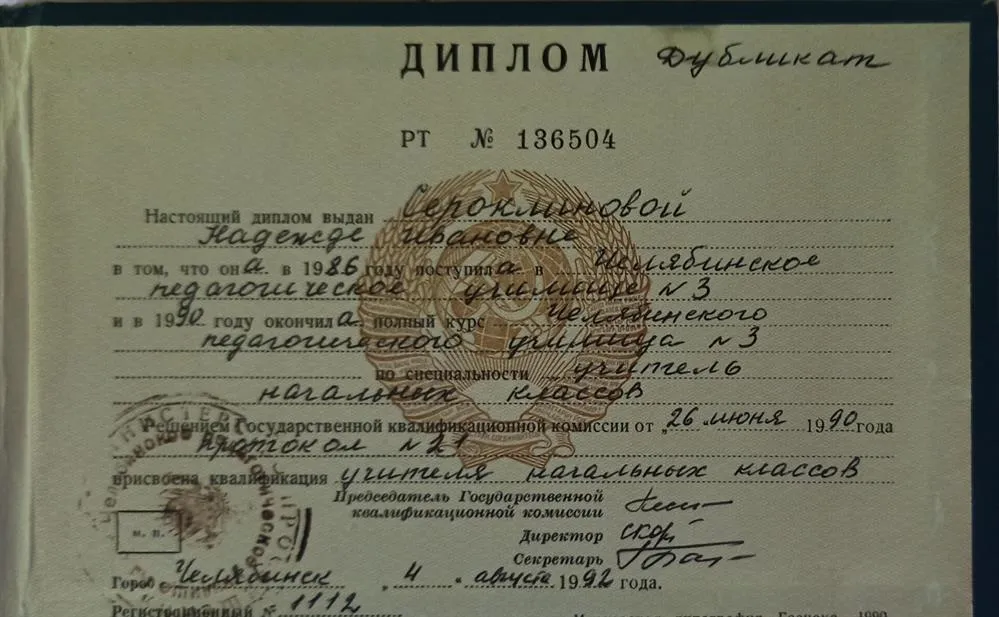 ДИПЛОМ Дубликат
РТ № 136504
Настоящий диплом выдан Сероклиновой
Надежде Ивановне
в том, что она в 1986 году поступила в Челябинское
педагогическое училище N 3
и в 1990 году окончила полный курс Челябинского
педагогического училища N 3
по специальности учитель
начальных классов
Решением Государственной квалификационной комиссии от „26 июня 1990 года
протокол N 21
присвоена квалификация учителя начальных классов
Председатель Государственной
квалификационной комиссии
Директор
Секретарь
М. П.
Город Челябинск „4 " августа 1992 года.
Регистрационный № 1112